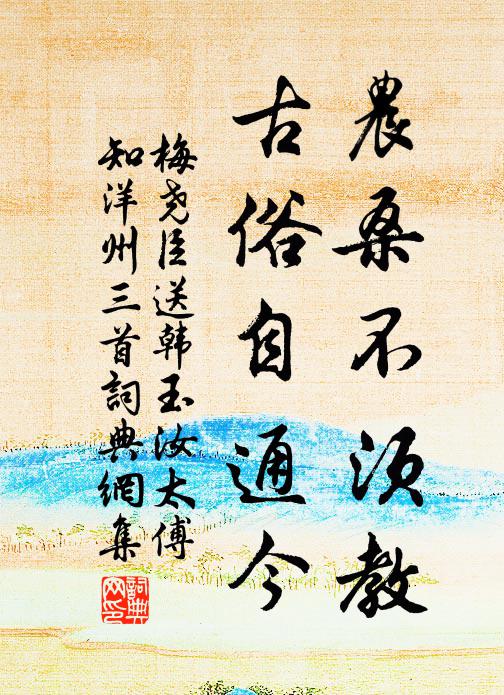 農桑不須教
古俗自通今
梅尧臣送韩玉汝太傅
知洋州三首詞典網集
詞典網印